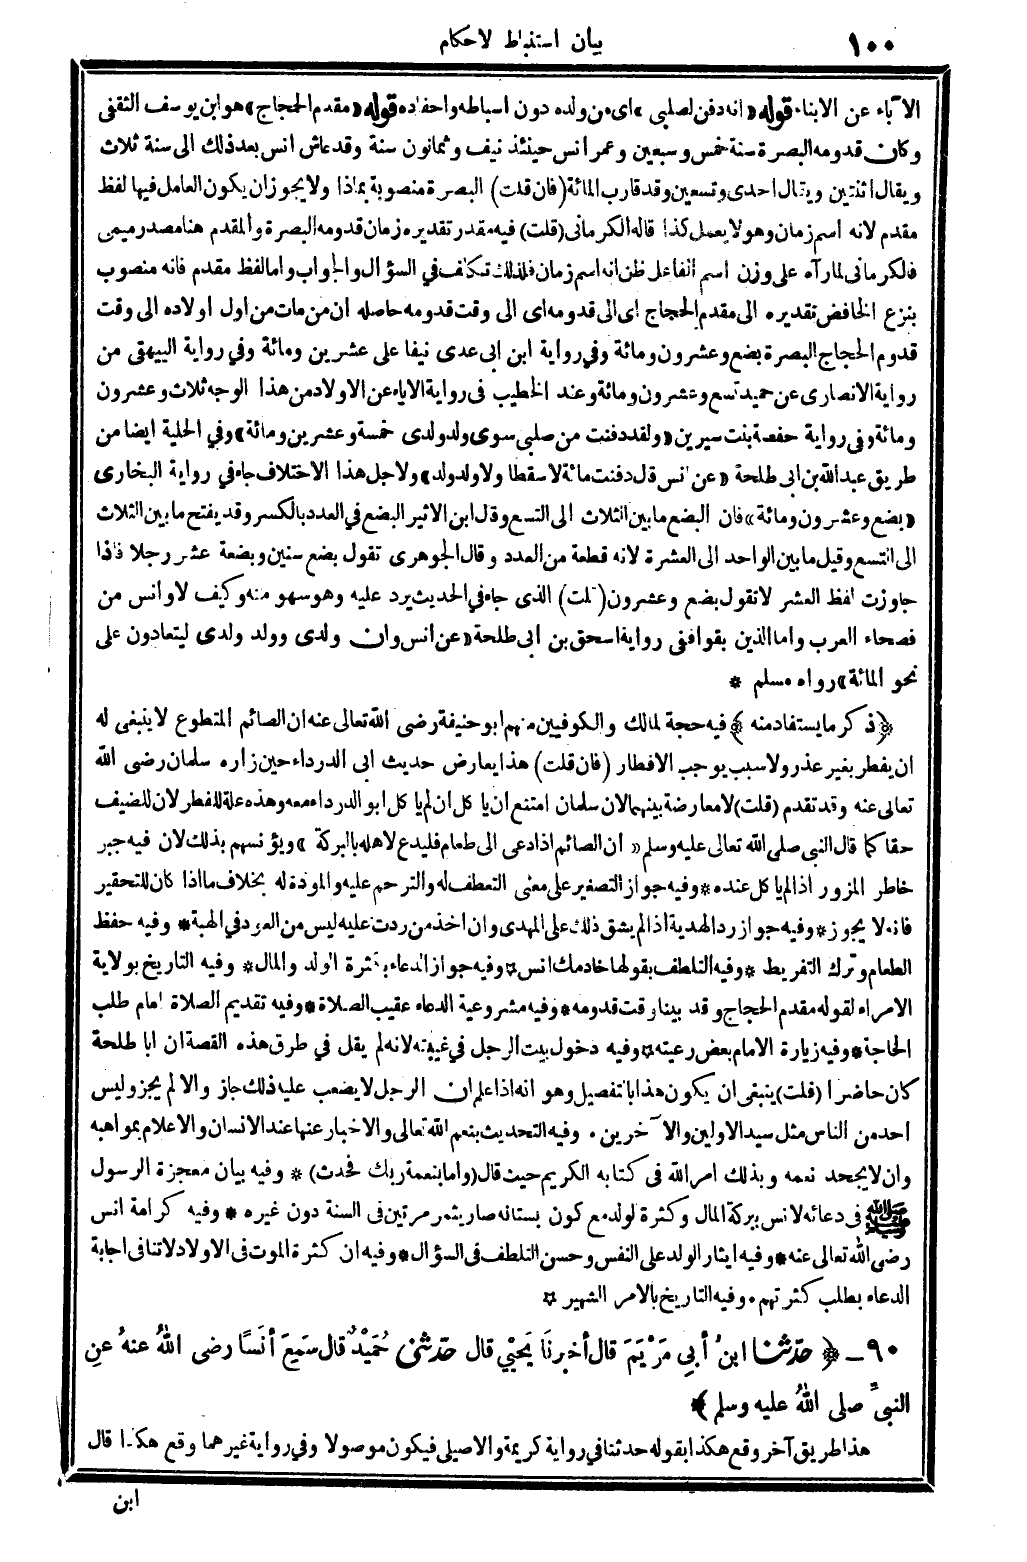 ١٠٠ بيان استنباط الاحكام
الآباء عن الابناء قوله «انه دفن لصلبي» اى من ولده دون اسباطه واحفاده قوله «مقدم الحجاج» هو ابن يوسف الثقفى
وكان قدومه البصرة سنة خمس وسبعين وعمر انس حينئذ نيف وثمانون سنة وقد عاش انس بعد ذلك الى سنة ثلاث
ويقال اثنتين ويقال احدى وتسعين وقد قارب المائة (فان قلت) البصرة منصوبة بماذا ولا يجوز ان يكون العامل فيها لفظ
مقدم لانه اسم زمان وهو لا يعمل كذا قاله الكرمانى (قلت) فيه مقدر تقديره زمان قدومه البصرة والمقدم هنا مصدر ميمى
فالكرمانى لما رآه على وزن اسم الفاعل ظن انه اسم زمان فلذلك تكلف في السؤال والجواب واما لفظ مقدم فانه منصوب
بنزع الخافض تقديره الى مقدم الحجاج اى الى قدومه اى الى وقت قدومه حاصله ان من مات من اول اولاده الى وقت
قدوم الحجاج البصرة بضع وعشرون ومائة وفي رواية ابن ابى عدى نيفا على عشرين ومائة وفي رواية البيهقى من
رواية الانصارى عن حميد تسع وعشرون ومائة وعند الخطيب فى رواية الاباء عن الاولاد من هذا الوجه ثلاث وعشرون
ومائة وفى رواية حفصة بنت سيرين «ولقد دفنت من صلبى سوى ولد ولدى خمسة وعشرين ومائة» وفي الحلية ايضا من
طريق عبد الله بن ابى طلحة «عن انس قال دفنت مائة لا سقطا ولا ولد ولد» ولاجل هذا الاختلاف جاء في رواية البخارى
«بضع وعشرون ومائة» فان البضع ما بين الثلاث الى التسع وقال ابن الاثير البضع في العدد بالكسر وقد يفتح ما بين الثلاث
الى التسع وقيل ما بين الواحد الى العشرة لانه قطعة من العدد وقال الجوهرى تقول بضع سنين وبضعة عشر رجلا فاذا
جاوزت لفظ العشر لا تقول بضع وعشرون (قلت) الذى جاء في الحديث يرد عليه وهو سهو منه وكيف لا وانس من
فصحاء العرب واما الذين بقوا ففى رواية اسحق بن ابى طلحة «عن انس وان ولدى وولد ولدى ليتعادون على
نحو المائة» رواه مسلم *
﴿ذكر ما يستفاد منه﴾ فيه حجة لمالك والكوفيين منهم ابو حنيفة رضى الله تعالى عنه ان الصائم المتطوع لا ينبغى له
ان يفطر بغير عذر ولا سبب يوجب الافطار (فان قلت) هذا يعارض حديث ابى الدرداء حين زاره سلمان رضى الله
تعالى عنه وقد تقدم (قلت) لا معارضة بينهما لان سلمان امتنع ان ياكل ان لم ياكل ابو الدرداء معه وهذه علة للفطر لان للضيف
حقا كما قال النبى صلى الله تعالى عليه وسلم «ان الصائم اذا دعى الى طعام فليدع لاهله بالبركة» ويؤنسهم بذلك لان فيه جبر
خاطر المزور اذا لم ياكل عنده * وفيه جواز التصغير على معنى التعطف له والترحم عليه والمودة له بخلاف ما اذا كان للتحقير
فانه لا يجوز * وفيه جواز رد الهدية اذا لم يشق ذلك على المهدى وان اخذ من ردت عليه ليس من العود في الهبة * وفيه حفظ
الطعام وترك التفريط * وفيه التلطف بقولها خادمك انس * وفيه جواز الدعاء بكثرة الولد والمال * وفيه التاريخ بولاية
الامراء لقوله مقدم الحجاج وقد بينا وقت قدومه * وفيه مشروعية الدعاء عقيب الصلاة * وفيه تقديم الصلاة امام طلب
الحاجة * وفيه زيارة الامام بعض رعيته * وفيه دخول بيت الرجل في غيبته لانه لم يقل في طرق هذه القصة ان ابا طلحة
كان حاضرا (قلت) ينبغى ان يكون هذا بالتفصيل وهو انه اذا علم ان الرجل لا يصعب عليه ذلك جاز والا لم يجز وليس
احد من الناس مثل سيد الاولين والآخرين . وفيه التحديث بنعم الله تعالى والاخبار عنها عند الانسان والاعلام بمواهبه
وان لا يجحد نعمه وبذلك امر الله فى كتابه الكريم حيث قال (واما بنعمة ربك فحدث) * وفيه بيان معجزة الرسول
ﷺ فى دعائه لانس ببركة المال وكثرة لولد مع كون بستانه صار يثمر مرتين فى السنة دون غيره * وفيه كرامة انس
رضى الله تعالى عنه * وفيه ايثار الولد على النفس وحسن التلطف فى السؤال * وفيه ان كثرة الموت فى الاولاد لا تنافى اجابة
الدعاء بطلب كثرتهم . وفيه التاريخ بالامر الشهير *
٩٠ـ ﴿حدّثنا ابنُ أبي مَرْيَمَ قال أخبرنَا يَحْيٰي قال حدّثنى حُمَيْدٌ قال سَمِعَ أنَسًا رضى اللهُ عنهُ عنِ
النبيِّ صلى اللهُ عليه وسلم﴾
هذا طريق آخر وقع هكذا بقوله حدثنا في رواية كريمة والاصيلى فيكون موصولا وفي رواية غيرهما وقع هكذا قال
ابن